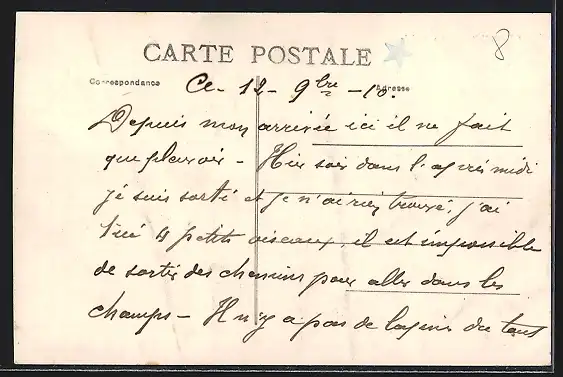 8
CARTE POSTALE
Correspondance
Adresse
Ce - 12 - 9bre - 10.
Depuis mon arrivée ici il ne fait
que pleuvoir - Hier soir dans l'après midi
je suis sorti et je n'ai rien trouvé. j'ai
tué 4 petits oiseaux, il est impossible
de sortir des chemins pour aller dans les
champs - Il n'y a pas de du tout